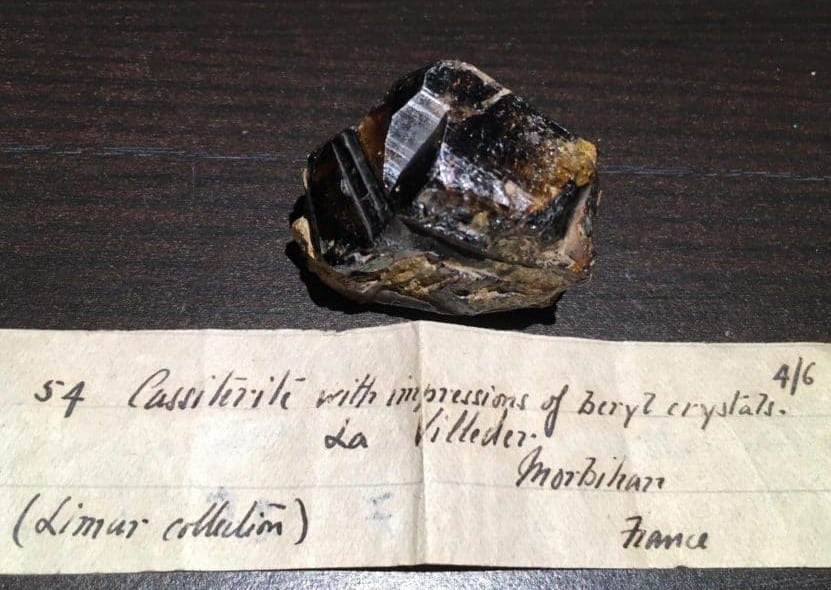 4/6
54 Cassiterite with impressions of beryl crystals.
La Villeder.
Morbihan
(Limur collection)
France